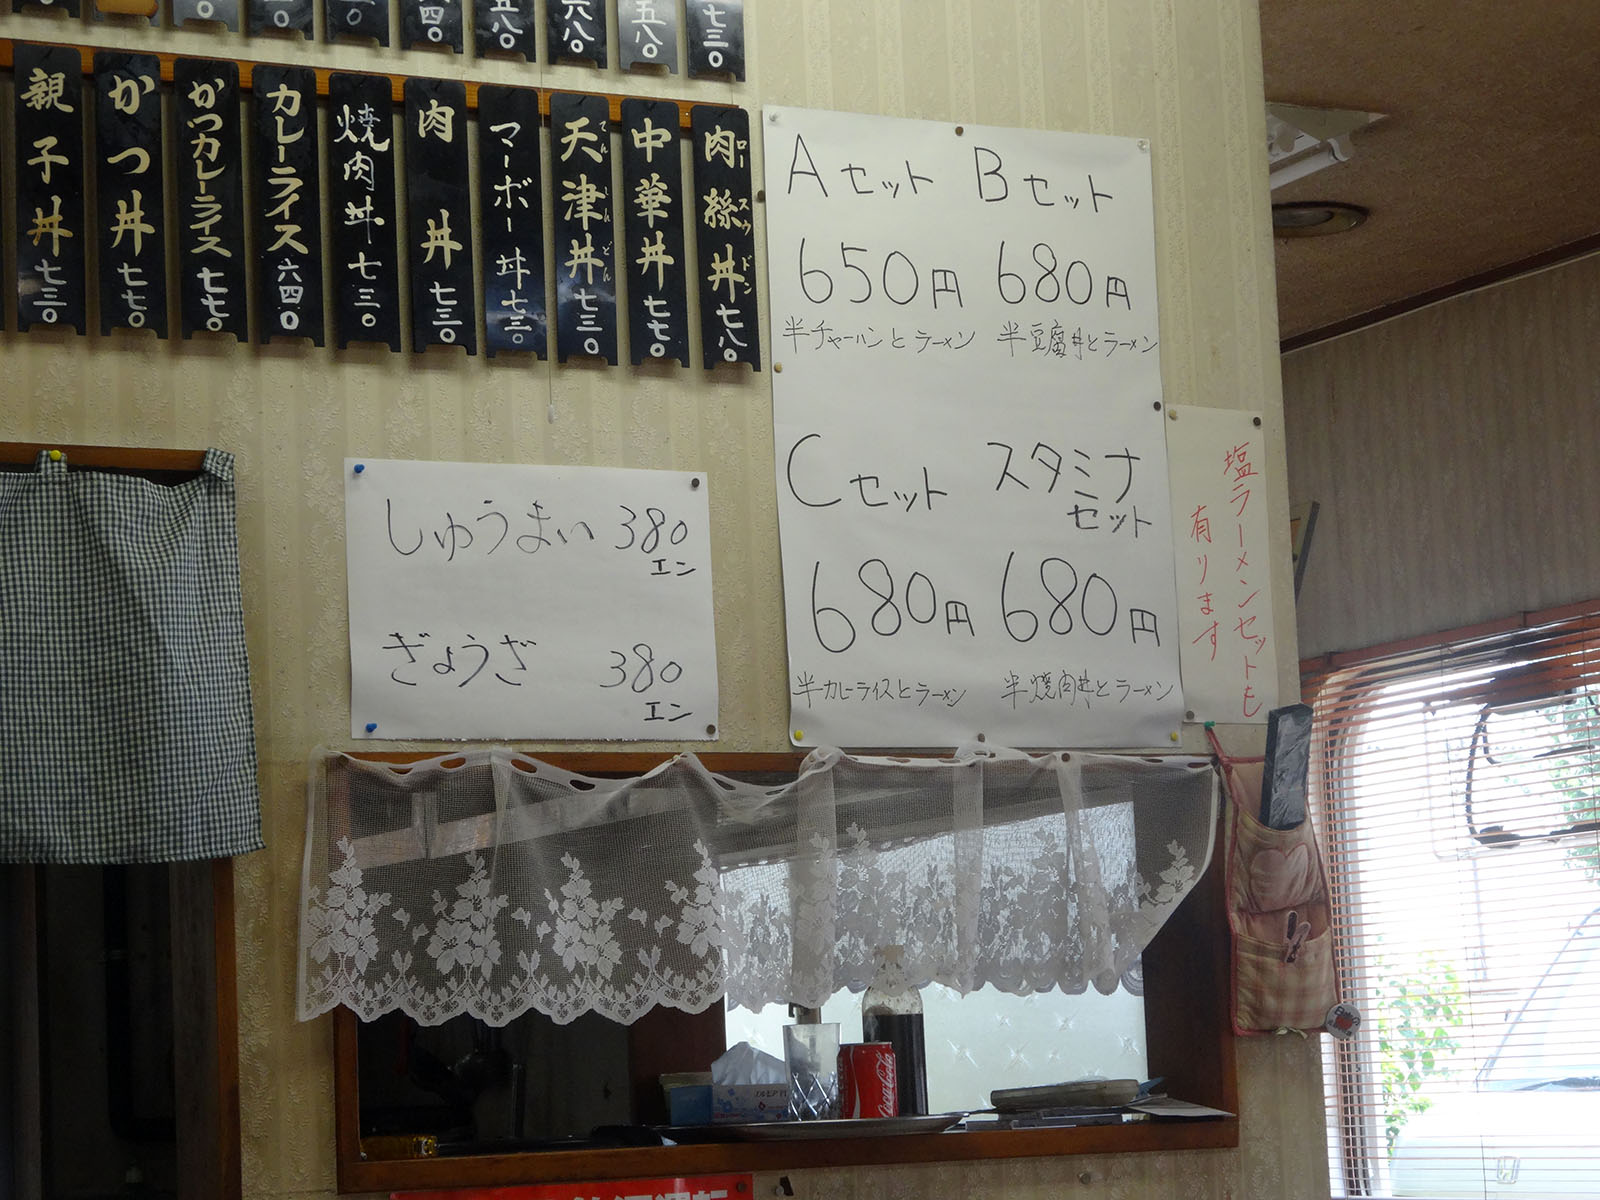 四〇
五八〇
六八〇
五八〇
七三〇
親子丼 七三〇
かつ丼 七七〇
かつカレーライス 七七〇
カレーライス 六四〇
焼肉丼 七三〇
肉丼 七三〇
マーボー丼 七三〇
天津丼 七三〇
てんしんどん
中華丼 七七〇
肉絲丼 七八〇
ロースウドン
Aセット Bセット
650円 680円
半チャーハンとラーメン 半豆腐丼とラーメン
Cセット スタミナ
セット
680円 680円
半カレーライスとラーメン 半焼肉丼とラーメン
塩ラーメンセットも
有ります
しゅうまい 380
エン
ぎょうざ 380
エン
Coca-Cola